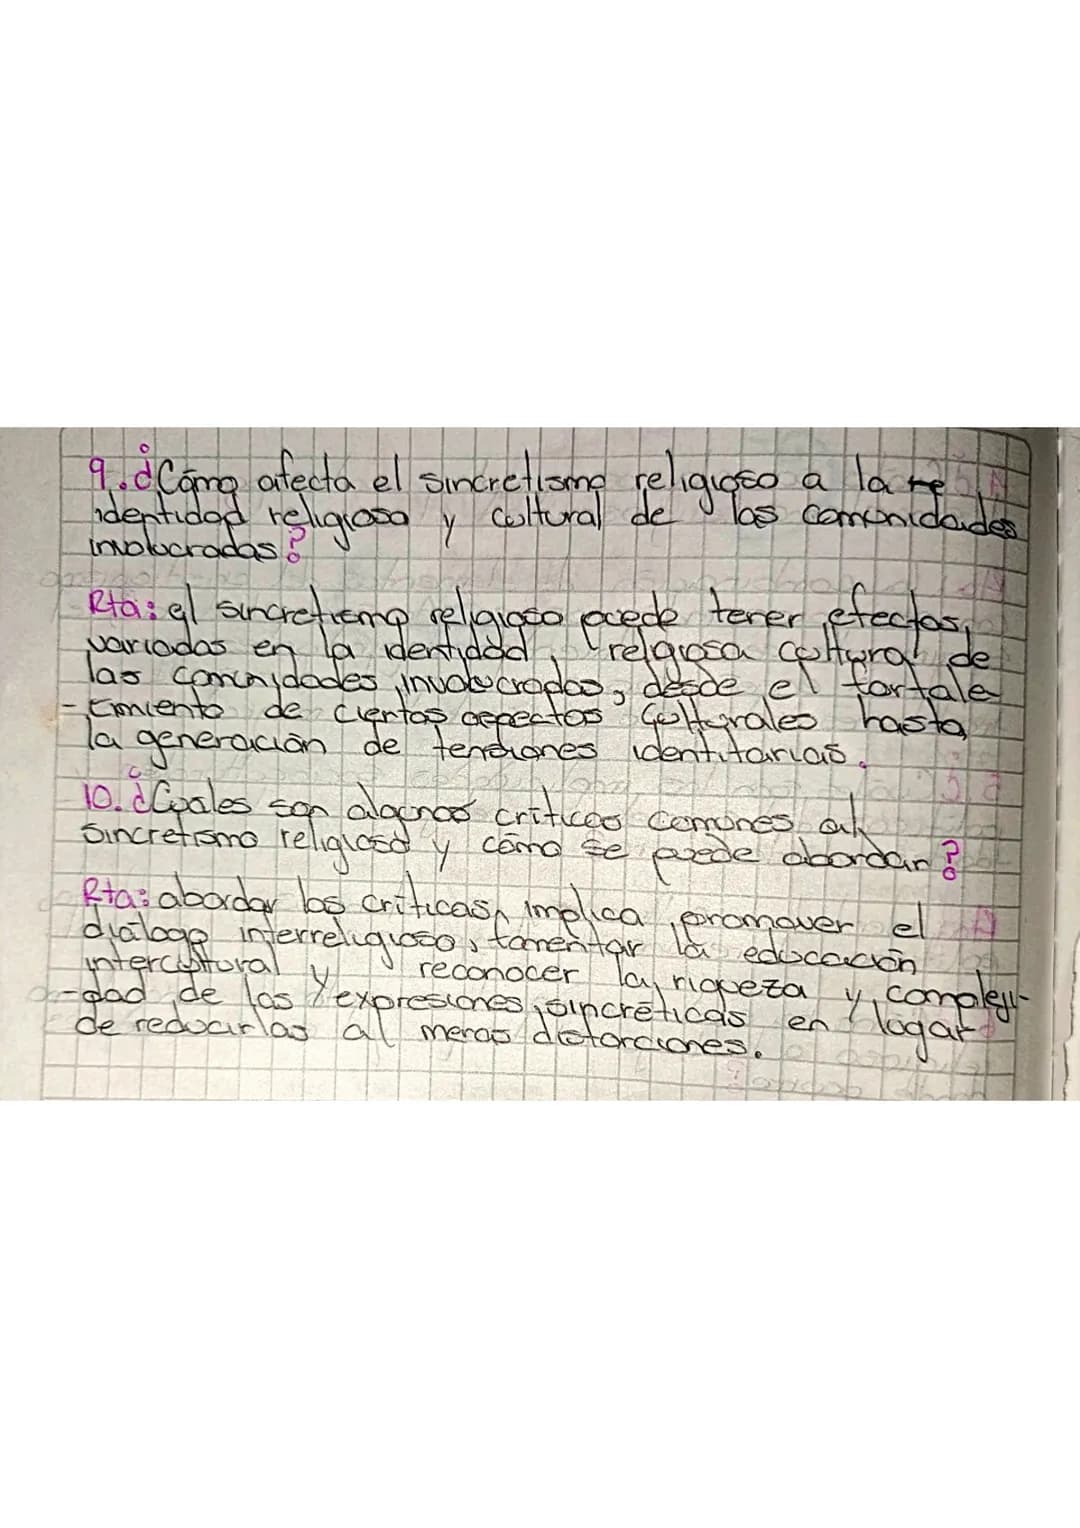 9. ¿Cómo afecta el sincretismo religioso a la re
identidad religiosa y cultural de las comunidades
involucradas?
Rta: el sincretismo religioso puede tener efectos
variados en la identidad, religiosa cultural de
las comunidades involucradas, desde el fortale
-cimiento de ciertas aspectos culturales hasta
la generación de tensiones identitarias.
10. ¿Cuales son algunas críticas comunes al
sincretismo religioso y cómo se puede abordar?
Rta: abordar las críticas, implica promover el
diálogo interreligioso, fomentar la educación
intercultural y reconocer la riqueza y compleji-
-dad de las expresiones sincréticas en lugar
de reducirlas al meras distorciones.